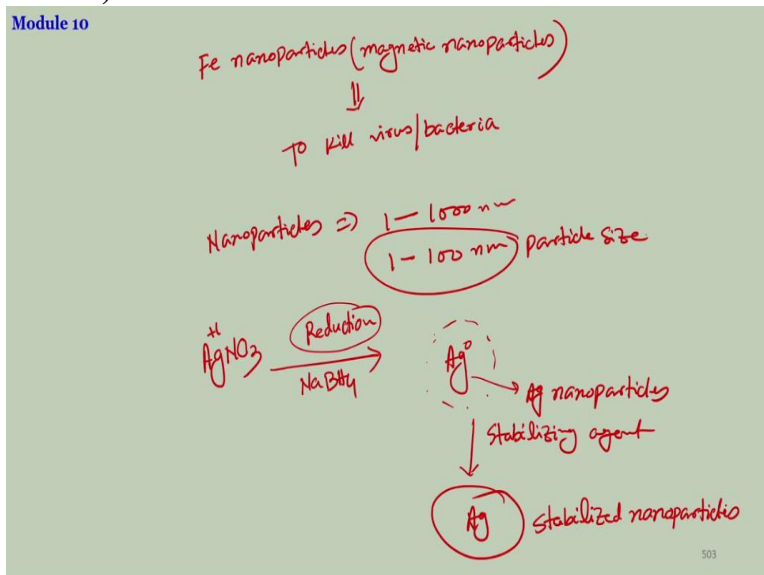 Module 10
Fe nanoparticles (magnetic nanoparticles)
⇓
To kill virus/bacteria
Nanoparticles ⇒ 1 – 1000 nm
1 – 100 nm particle size
+1
AgNO3 Reduction Ag0
NaBH4
Ag nanoparticles
Stabilizing agent
Ag stabilized nanoparticles
503